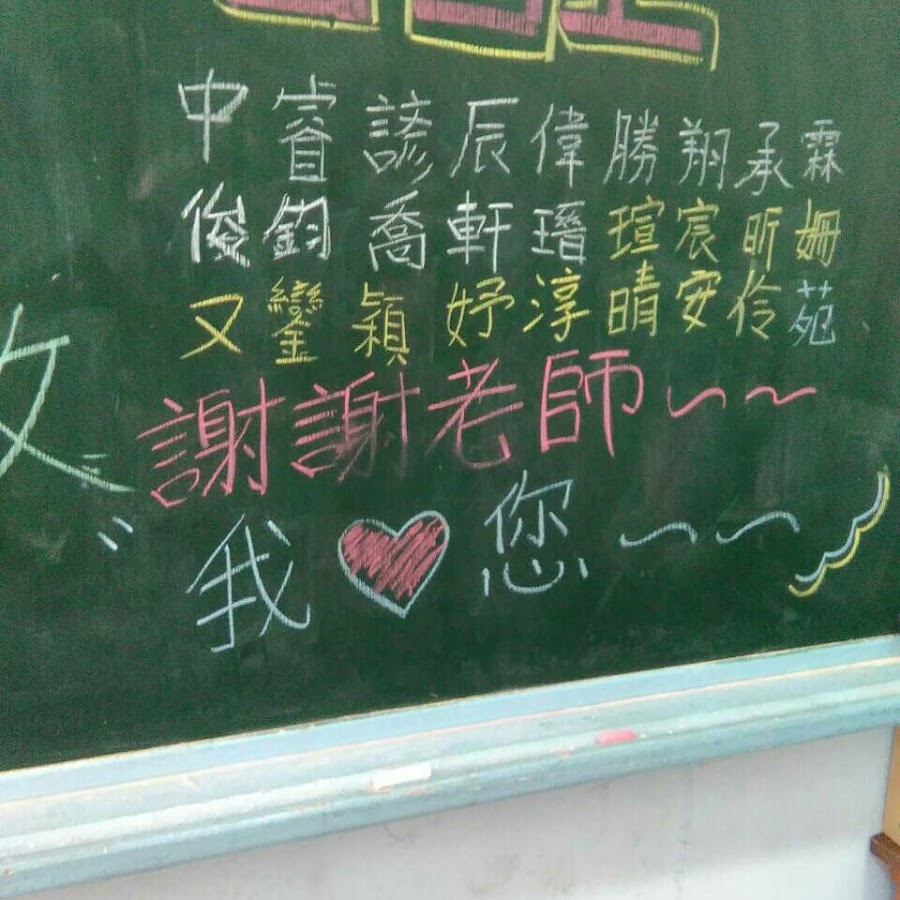 中睿諺辰偉勝翔承霖
俊鈞喬軒瑨瑄宸昕姍
又鑾穎妤淳晴安伶苑
謝謝老師~~
我♥您~~